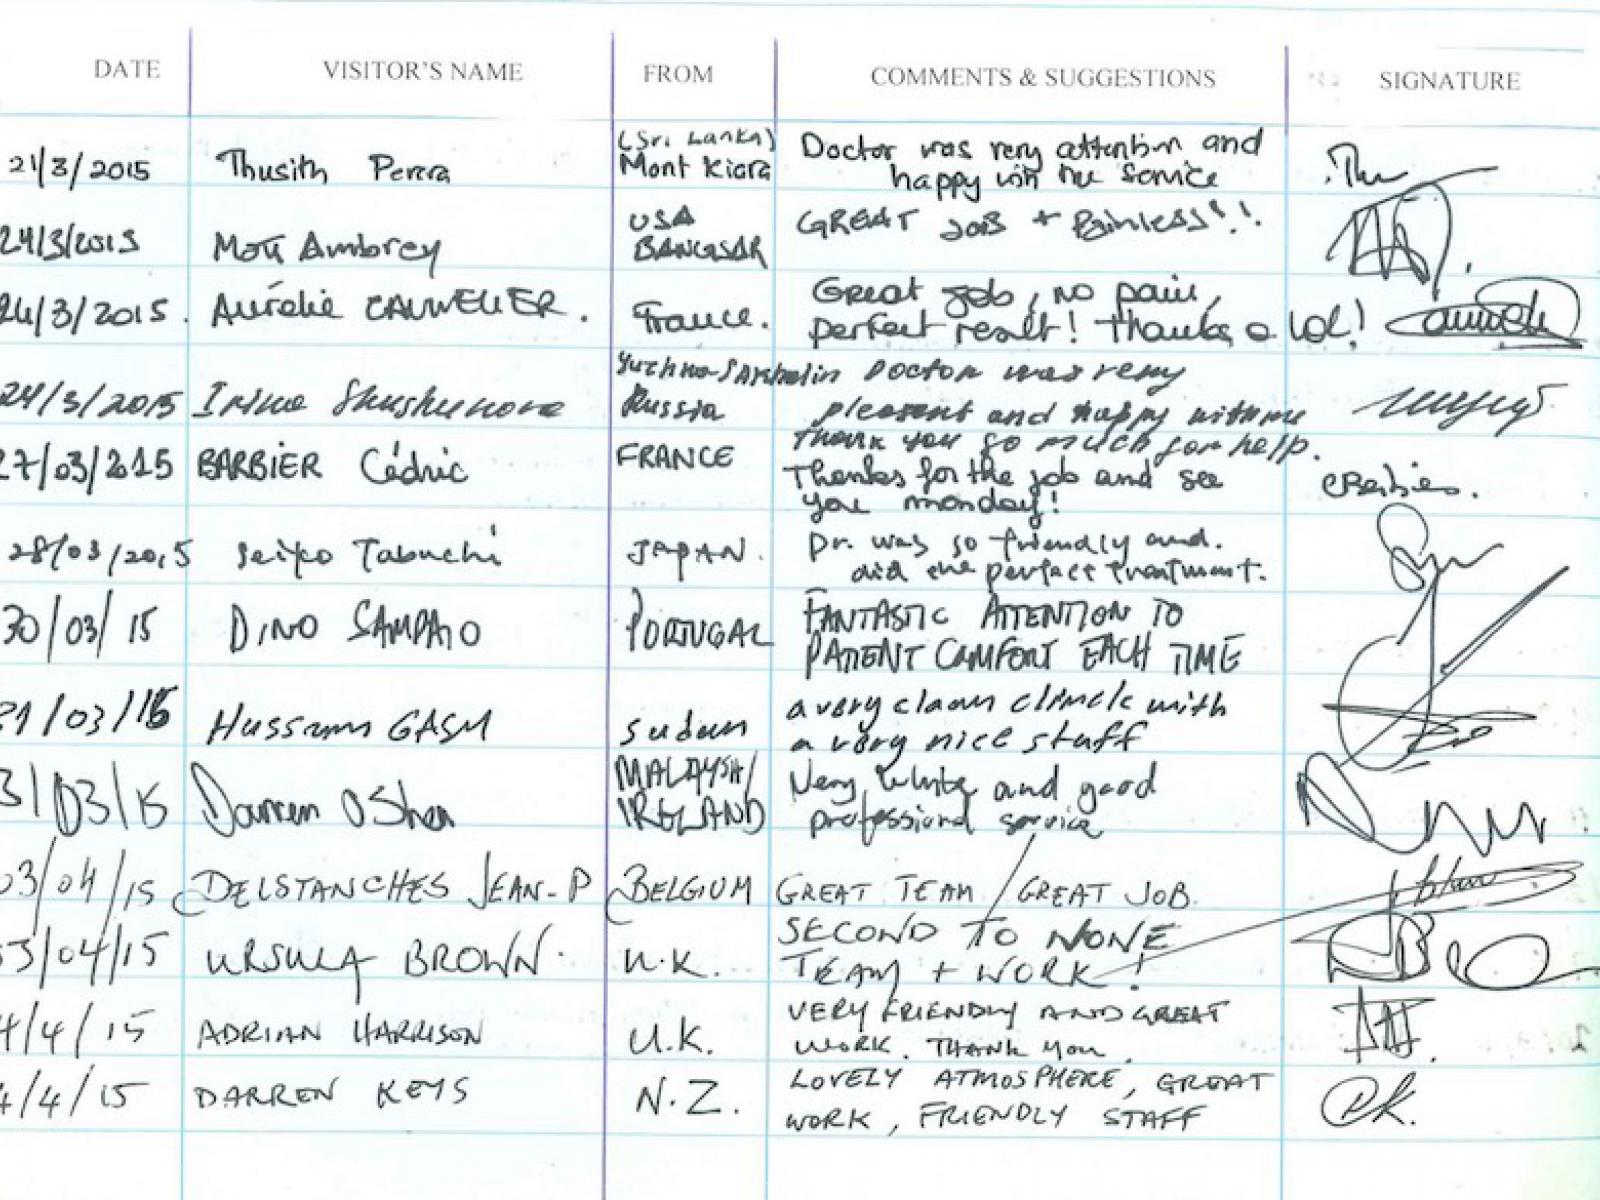 DATE VISITOR'S NAME FROM COMMENTS & SUGGESTIONS SIGNATURE
(Sri Lanka) Doctor was very attention and
21/3/2015 Thusith Perera Mont Kiara happy with the service
USA GREAT JOB + Painless!!
24/3/2015 Matt Ambrey BANGSAR
Great job, no pain,
24/3/2015. Aurélie CAUWELIER. France. perfect result! Thanks a lol!
Doctor was very
24/3/2015 Irina Russia pleasant and happy with me
Thank you so much for help.
27/03/2015 BARBIER Cédric FRANCE Thanks for the job and see
you monday!
28/03/2015 Seiko Tabuchi JAPAN. Dr. was so friendly and.
did the perfect treatment.
30/03/15 DINO SAMPAIO PORTUGAL FANTASTIC ATTENTION TO
PATIENT COMFORT EACH TIME
31/03/15 Hussam GASM sudan a very clean clinick with
a very nice staff
MALAYSIA/ Very white and good
31/03/15 Darren O Shea IRELAND professional service
03/04/15 DELSTANCHES JEAN-P BELGIUM GREAT TEAM / GREAT JOB.
SECOND TO NONE
03/04/15 URSULA BROWN. U.K. TEAM + WORK!
VERY FRIENDLY AND GREAT
4/4/15 ADRIAN HARRISON U.K. WORK. THANK YOU.
LOVELY ATMOSPHERE, GREAT
4/4/15 DARREN KEYS N.Z. WORK, FRIENDLY STAFF DK.